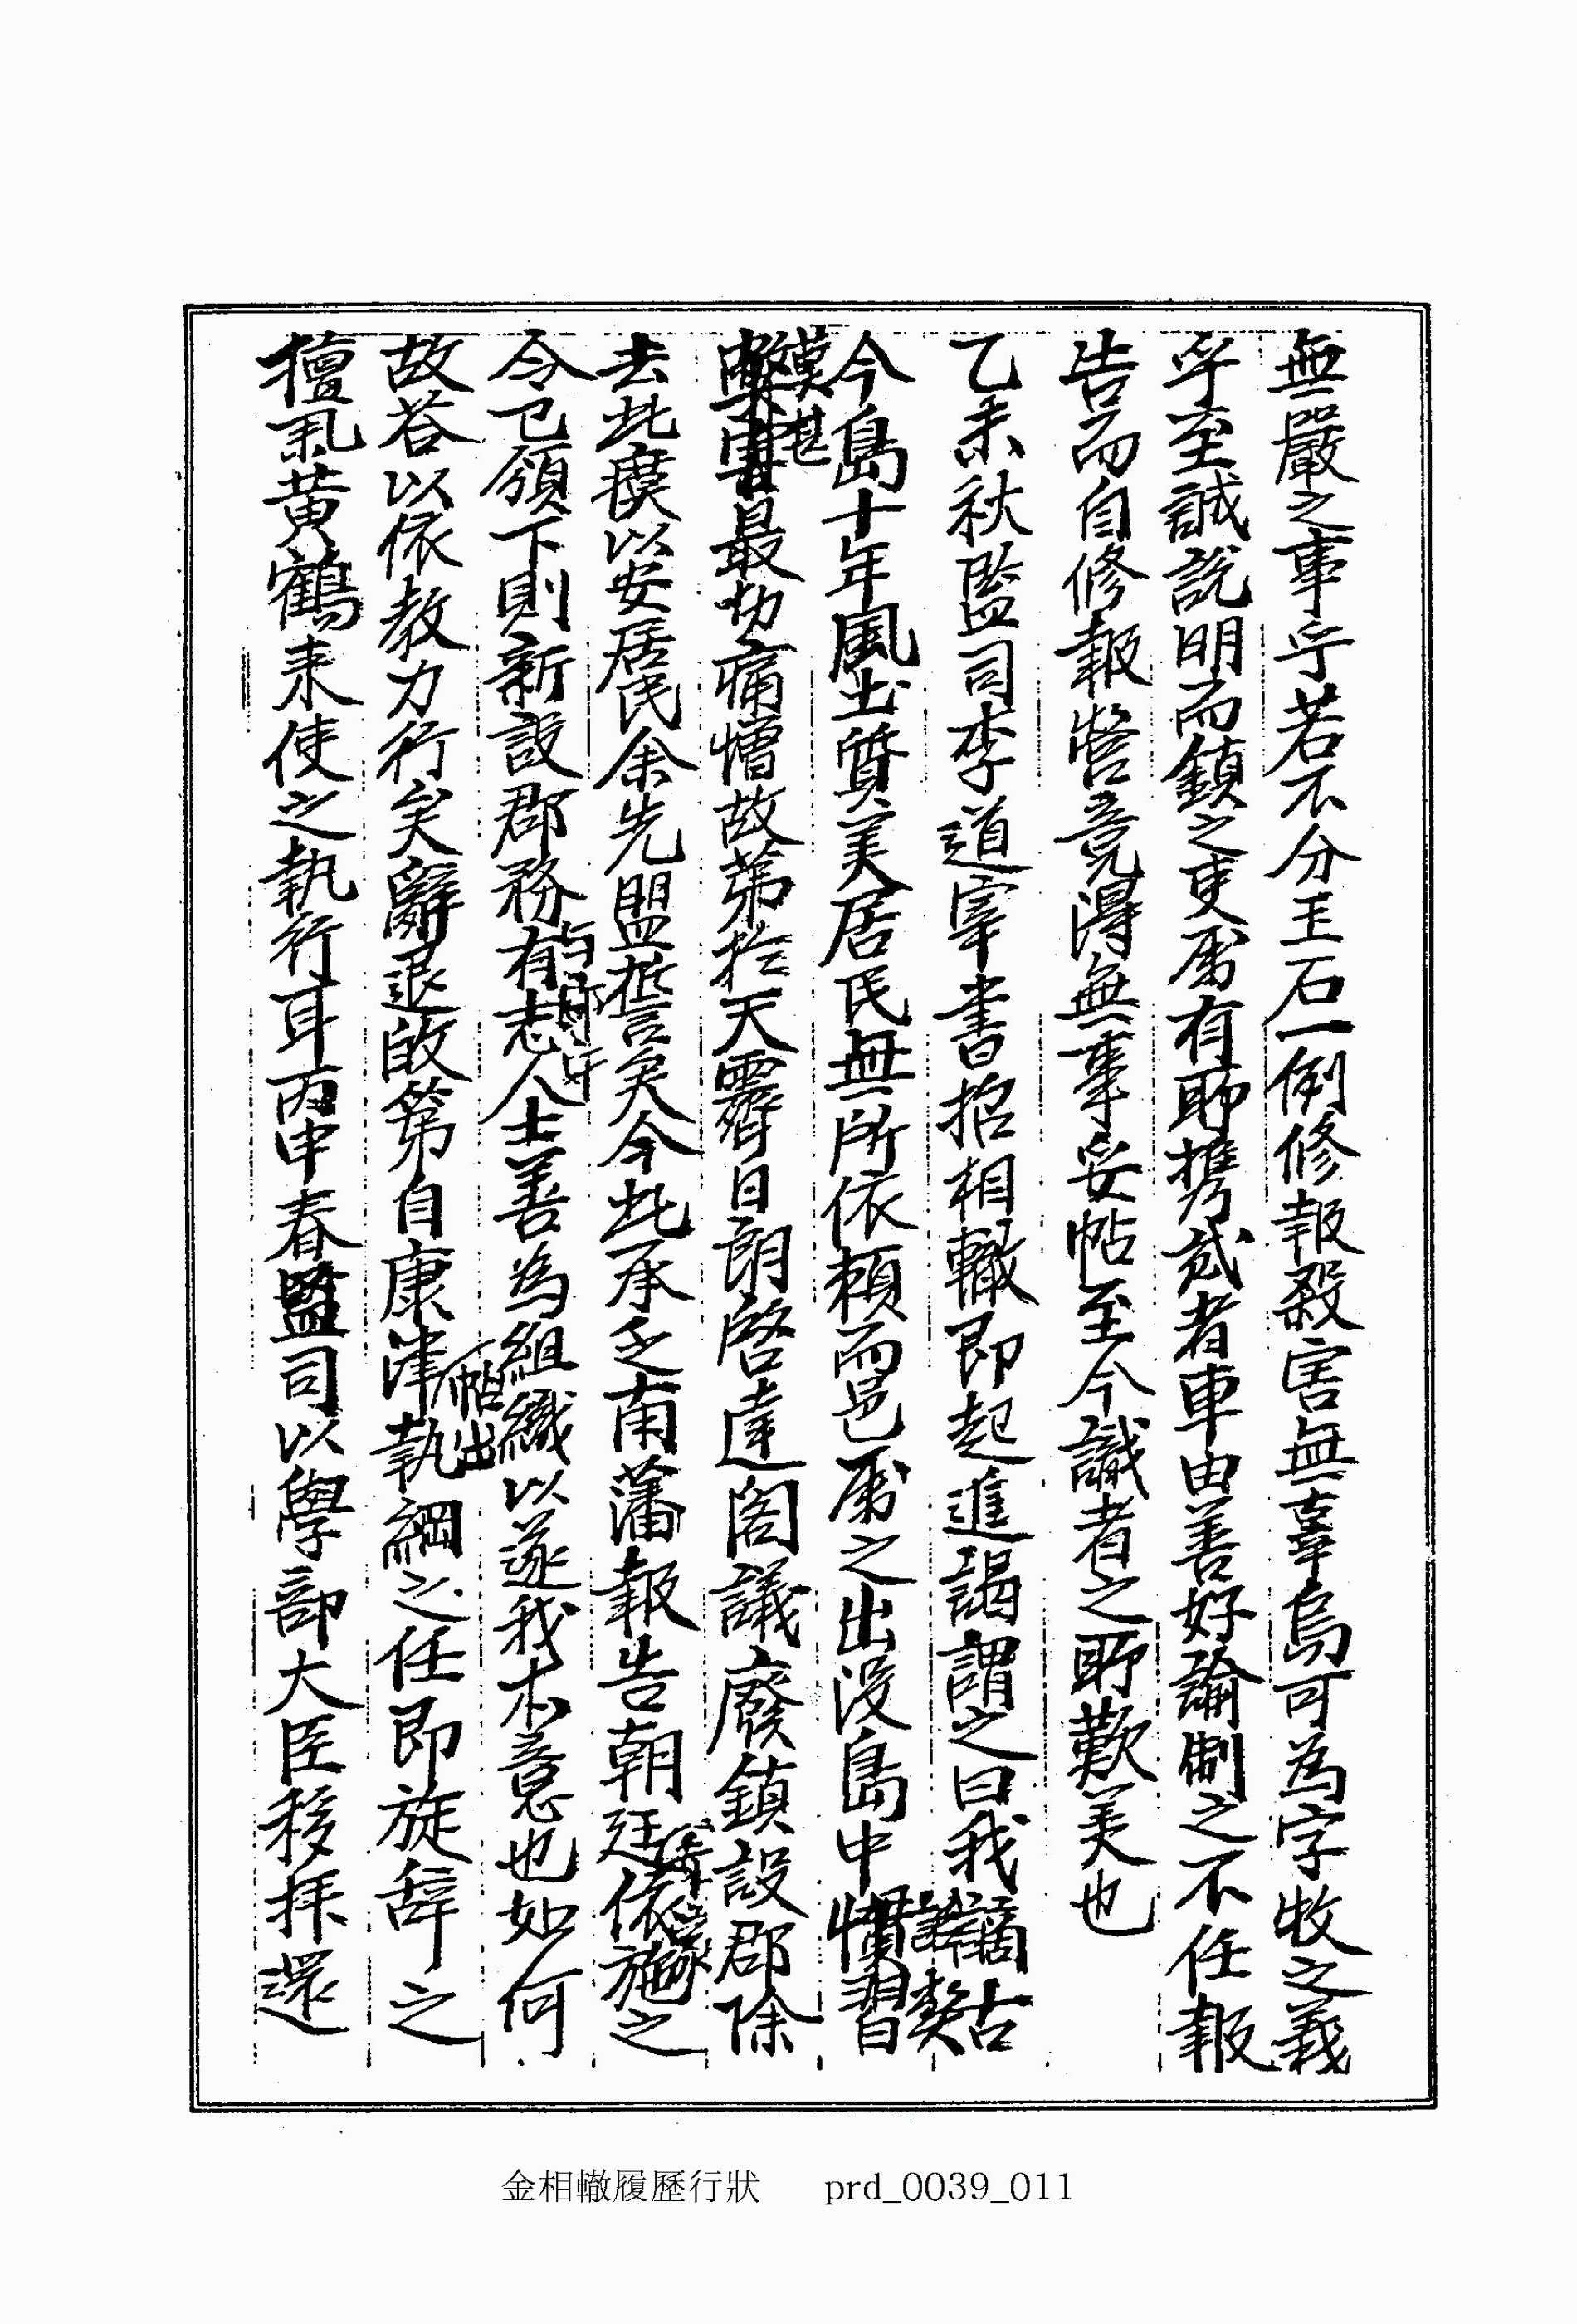 無嚴之事乎若不分玉石一例修報殺害無辜烏可為字牧之義
乎至誠說明而鎮之吏屬有耶携貳者車由善好論制之不任報
告而自修報營竟得無事妥帖至今識者之耶歎美也
乙未秋監司李道宰書招相轍即起進謁謂之曰我謫古
今島十年風土質美居民無所依賴而邑屬之出沒島中慣習
弊害最切痛憎故苐於天霽日朗啓達閤議廢鎮設郡除
莫甚
去此瘼以安居民余先盟誓矣今此承乏南藩報告朝廷依施之
令已領下則新設郡務有志人士善為組織以遂我本意也如何
与同
故答以依教力行矣辭退啟第自康津執綱之任即旋辞之
帖出
擅亂黃鶴来使之執行耳丙申春監司以學部大臣移拜還
金相轍履歷行狀 prd_0039_011